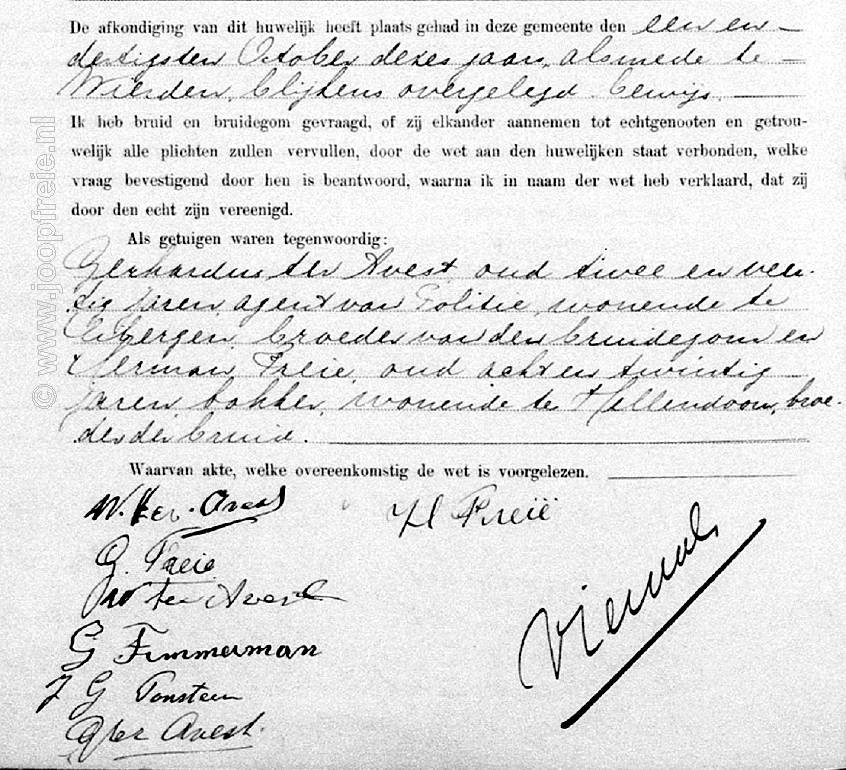 De afkondiging van dit huwelijk heeft plaats gehad in deze gemeente den een en
dertigsten October dezes jaars, alsmede te
Wierden, blijkens overgelegd bewijs.
Ik heb bruid en bruidegom gevraagd, of zij elkander aannemen tot echtgenooten en getrou-
welijk alle plichten zullen vervullen, door de wet aan den huwelijken staat verbonden, welke
vraag bevestigend door hen is beantwoord, waarna ik in naam der wet heb verklaard, dat zij
door den echt zijn vereenigd.
Als getuigen waren tegenwoordig:
Gerhardus ter Avest, oud twee en veer-
tig jaren, agent van Politie, wonende te
Eibergen, broeder van den bruidegom en
Herman Freie, oud acht en twintig
jaren, bakker, wonende te Hellendoorn, broe-
der der bruid.
Waarvan akte, welke overeenkomstig de wet is voorgelezen.
W. ter Avest H Freië
G. Freie
ter Avest
G Timmerman
J G Tonsteen
G ter Avest.
© www.joopfreie.nl